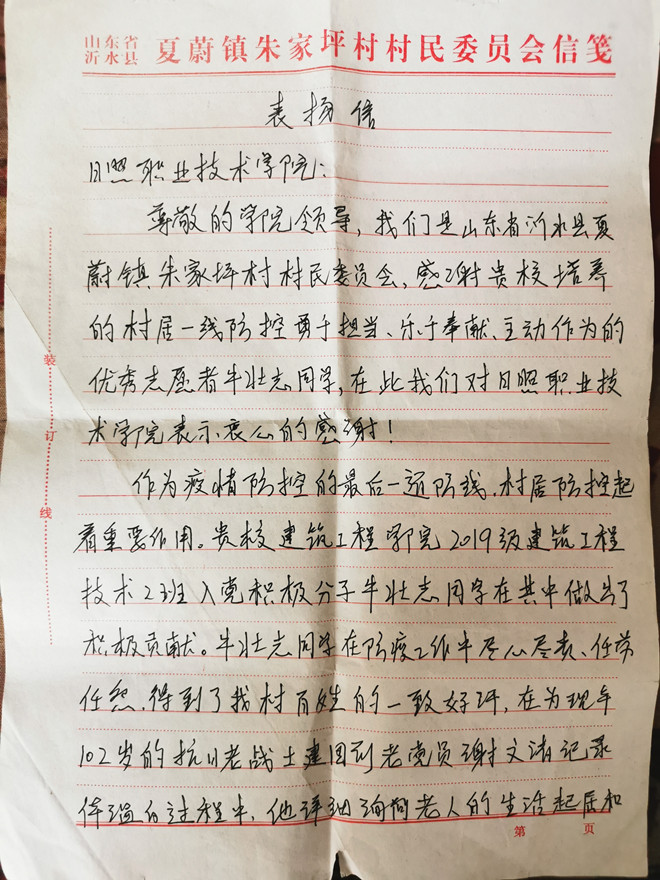 山东省
沂水县 夏蔚镇朱家坪村村民委员会信笺
表扬信
日照职业技术学院：
尊敬的学院领导，我们是山东省沂水县夏
蔚镇朱家坪村村民委员会，感谢贵校培养
的村居一线防控勇于担当、乐于奉献、主动作为的
优秀志愿者牛壮志同学，在此我们对日照职业技
术学院表示衷心的感谢！
作为疫情防控的最后一道防线，村居防控起
着重要作用。贵校建筑工程学院2019级建筑工程
技术2班入党积极分子牛壮志同学在其中做出了
积极贡献。牛壮志同学在防疫工作中尽心尽责、任劳
任怨，得到了我村百姓的一致好评，在为现年
102岁的抗日老战士建国前老党员谢文清记录
体温的过程中，他详细询问老人的生活起居和
装
订
线
第 页